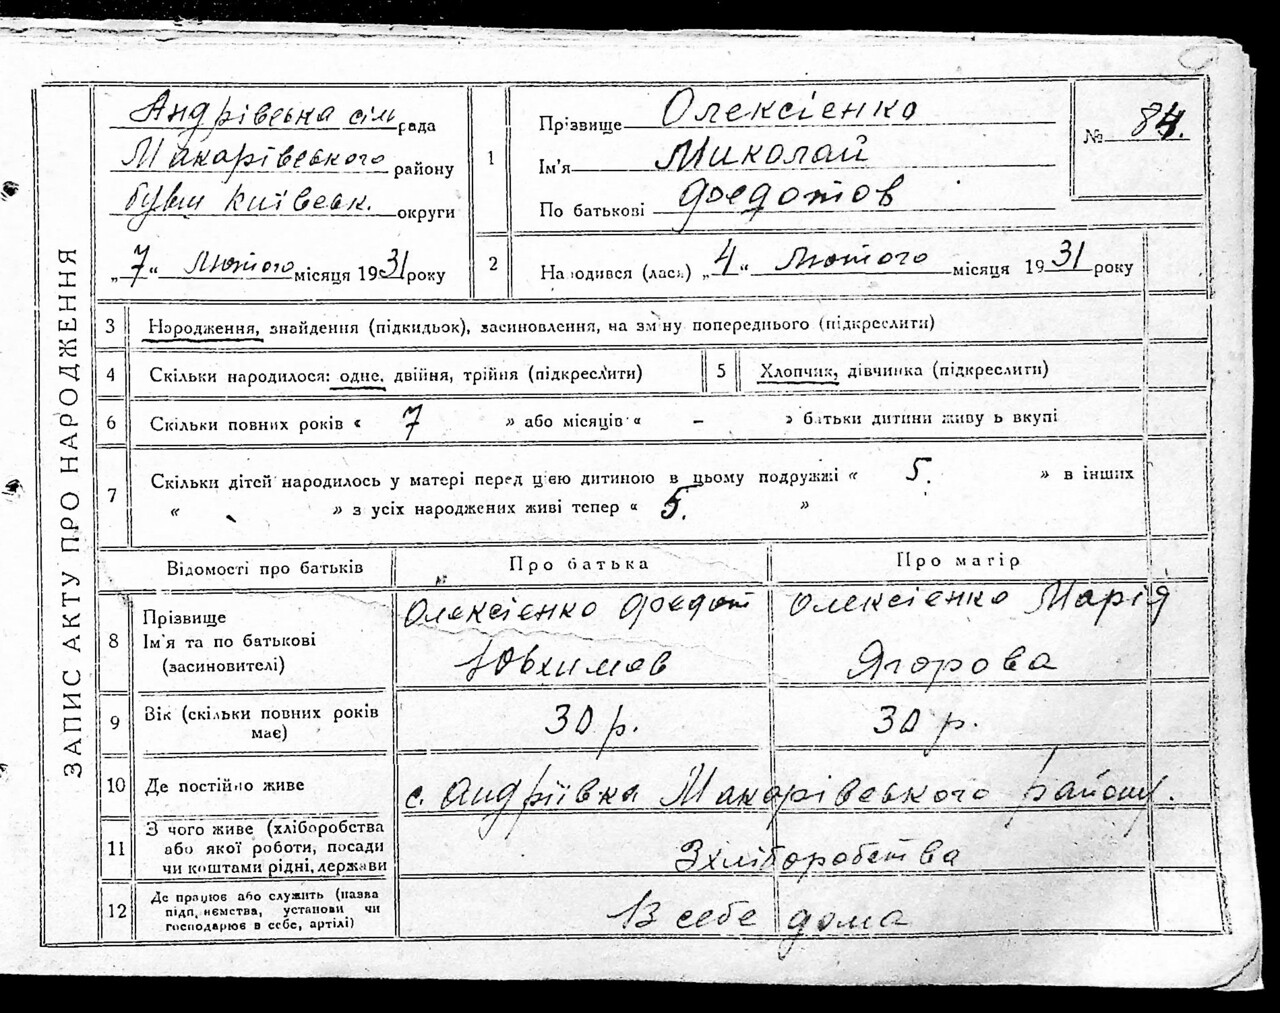 ЗАПИС АКТУ ПРО НАРОДЖЕННЯ
Андрівська сіл рада
Макарівського району
бувш київськ. округи
„7“ Лютого місяця 1931 року
1
Прізвище Олексієнко
Ім'я Миколай
По батькові Федотов
№ 84.
2
Народився (лась) „4“ Лютого місяця 1931 року
3 Народження, знайдення (підкидьок), засиновлення, на зміну попереднього (підкреслити)
4 Скільки народилося: одне, двійня, трійня (підкреслити)
5 Хлопчик, дівчинка (підкреслити)
6 Скільки повних років « 7 » або місяців « – » батьки дитини живуть вкупі
7 Скільки дітей народилось у матері перед цією дитиною в цьому подружжі « 5. » в інших
« » з усіх народжених живі тепер « 5. »
Відомості про батьків Про батька Про матір
8 Прізвище
Ім'я та по батькові
(засиновителі)
Олексієнко Федот
Юхимов
Олексієнко Марія
Ягорова
9 Вік (скільки повних років
має)
30 р. 30 р.
10 Де постійно живе с. Андріївка Макарівського району.
11 З чого живе (хліборобства
або якої роботи, посади
чи коштами рідні, держави
З хліборобства
12 Де працює або служить (назва
підприємства, установи чи
господарює в себе, артілі)
В себе дома